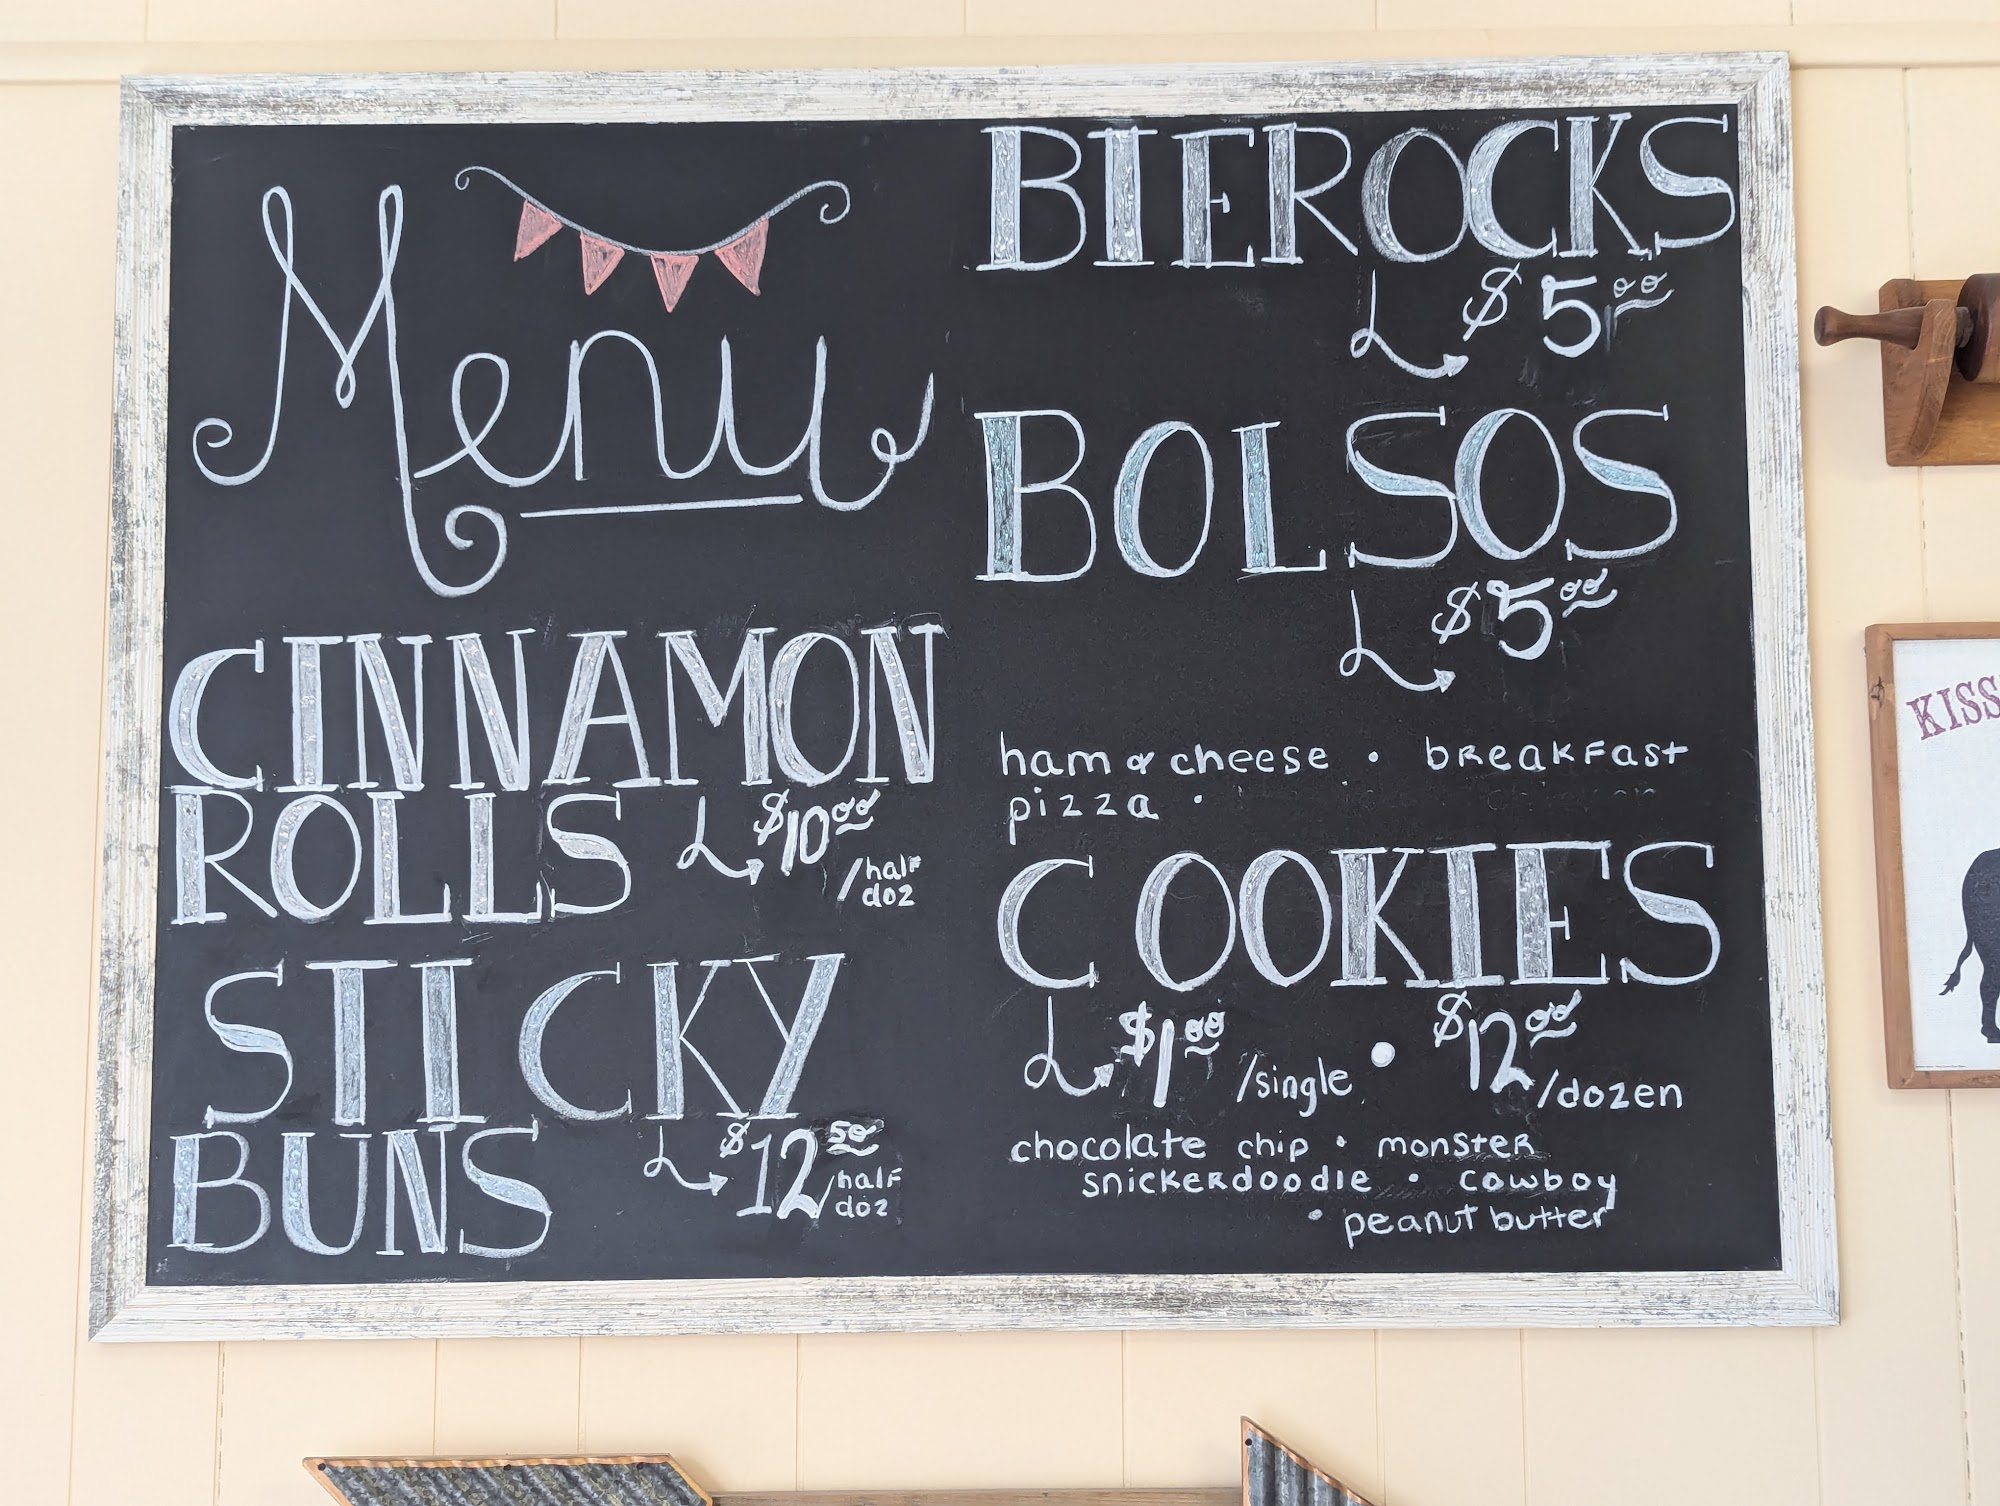 Menu
CINNAMON
ROLLS $10.00
/half
doz
STICKY
BUNS $12.50
/half
doz
BIEROCKS
$5.00
BOLSOS
$5.00
ham & cheese • breakfast
pizza •
COOKIES
$1.00 /single • $12.00 /dozen
chocolate chip • monster
snickerdoodle • cowboy
• peanut butter
KISS